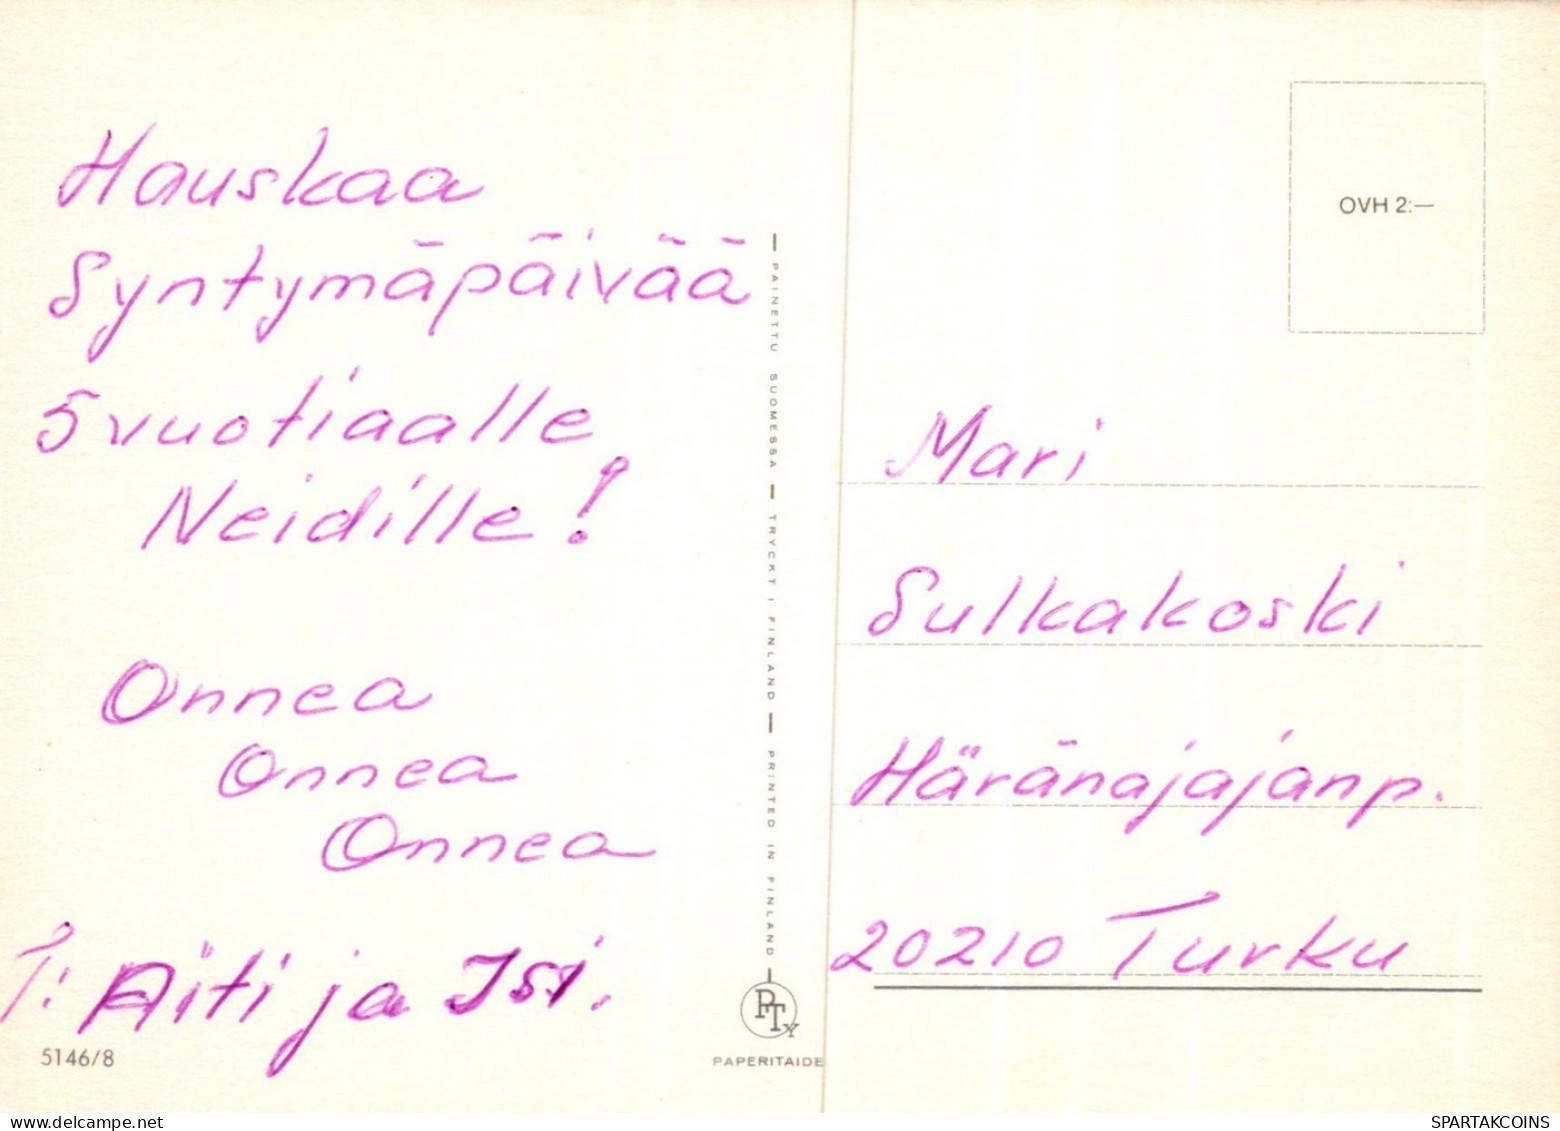 Hauskaa
Syntymäpäivää
5 vuotiaalle
Neidille!
Onnea
Onnea
Onnea
T: Äiti ja Isi.
5146/8
PAINETTU SUOMESSA — TRYCKT I FINLAND — PRINTED IN FINLAND
PTy
PAPERITAIDE
OVH 2:—
Mari
Sulkakoski
Häränajajanp.
20210 Turku
SPARTAKCOINS